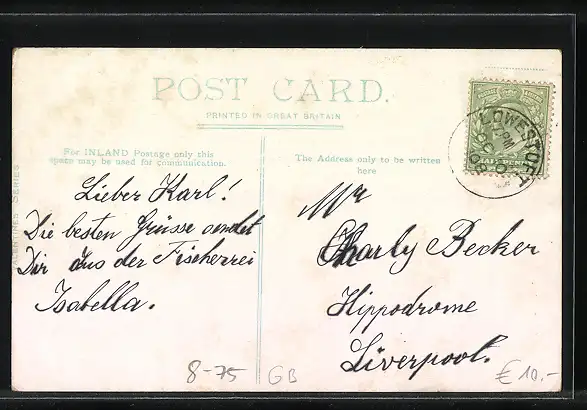 POST CARD.
PRINTED IN GREAT BRITAIN
For INLAND Postage only this
space may be used for communication.
The Address only to be written
here
VALENTINES SERIES
LOWESTOFT
Lieber Karl!
Die besten Grüsse sendet
Dir aus der Fischerrei
Isabella.
Mr
Charly Becker
Hippodrome
Liverpool.
8-75
GB
€ 10.-